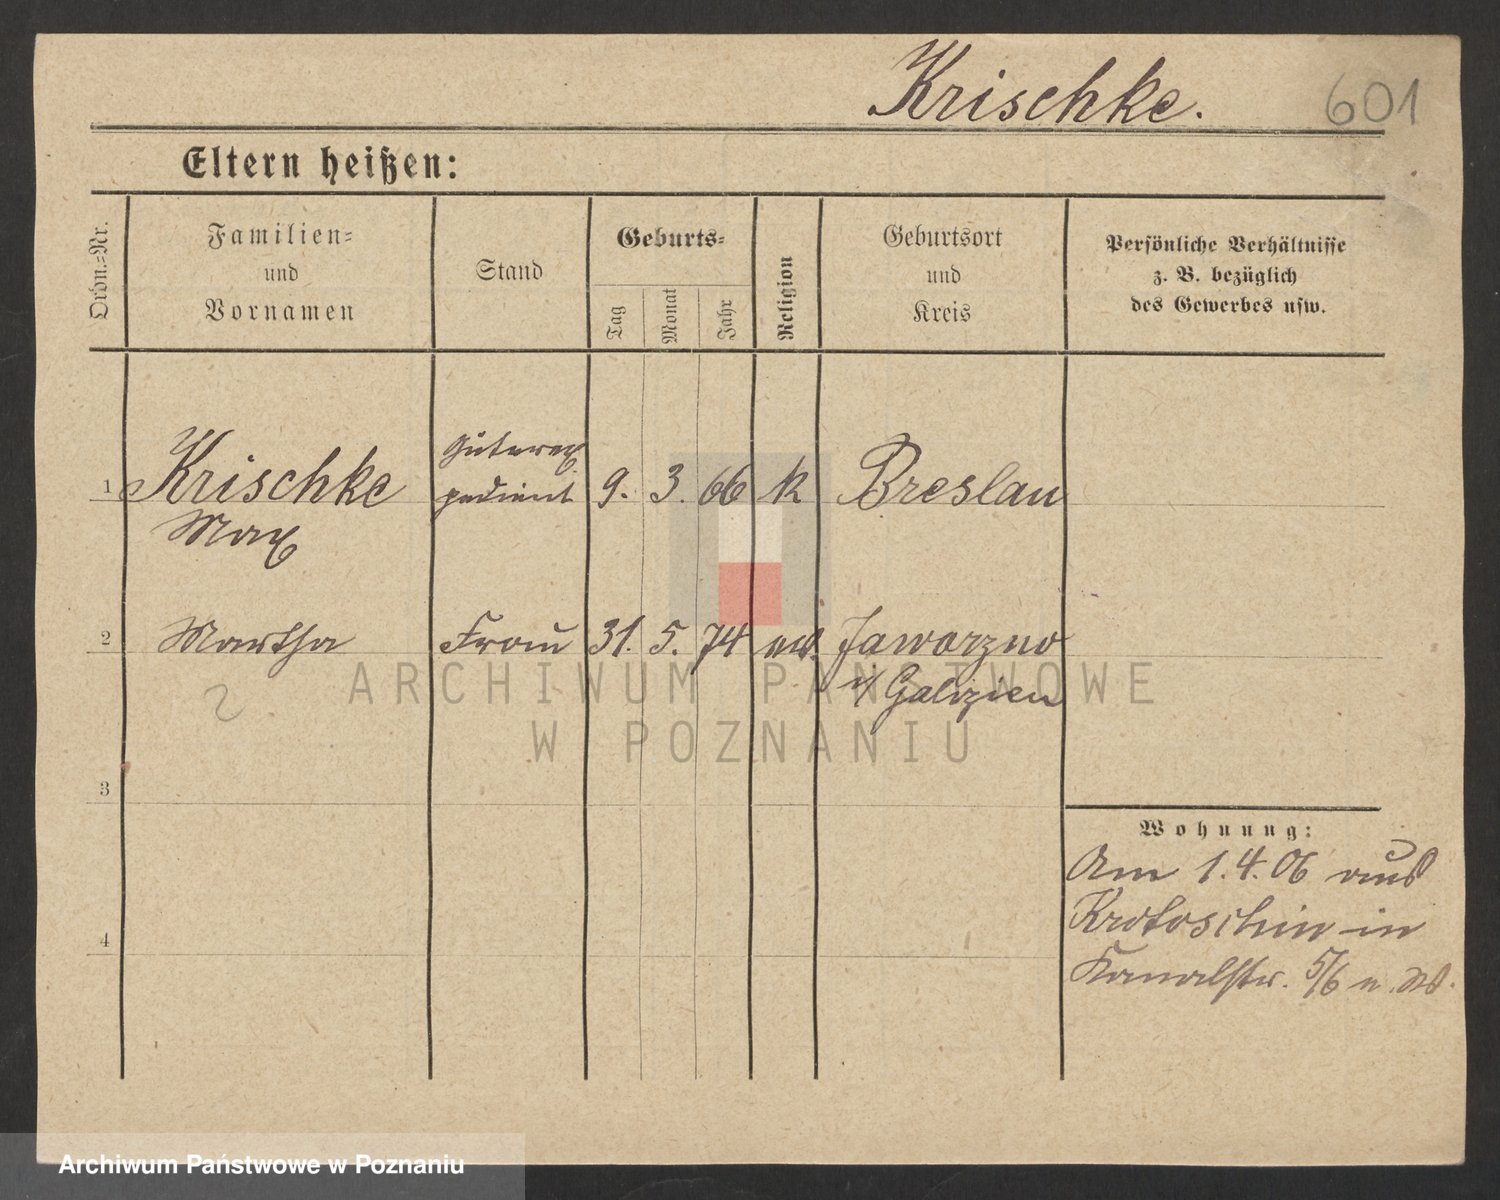 Krischke.
601
Eltern heißen:
Ordn.=Nr.
Familien=
und
Vornamen
Stand
Geburts=
Tag
Monat
Jahr
Religion
Geburtsort
und
Kreis
Persönliche Verhältnisse
z. B. bezüglich
des Gewerbes usw.
1
Krischke
Max
Güterex
pedient
9. 3. 66
k
Breslau
2
Martha
Frau
31. 5. 74
ev.
Jaworzno
i/ Galizien
2
3
4
Wohnung:
Am 1.4.06 aus
Krotoschin in
Kanalstr. 5/6 n.
ARCHIWUM PAŃSTWOWE
W POZNANIU
Archiwum Państwowe w Poznaniu